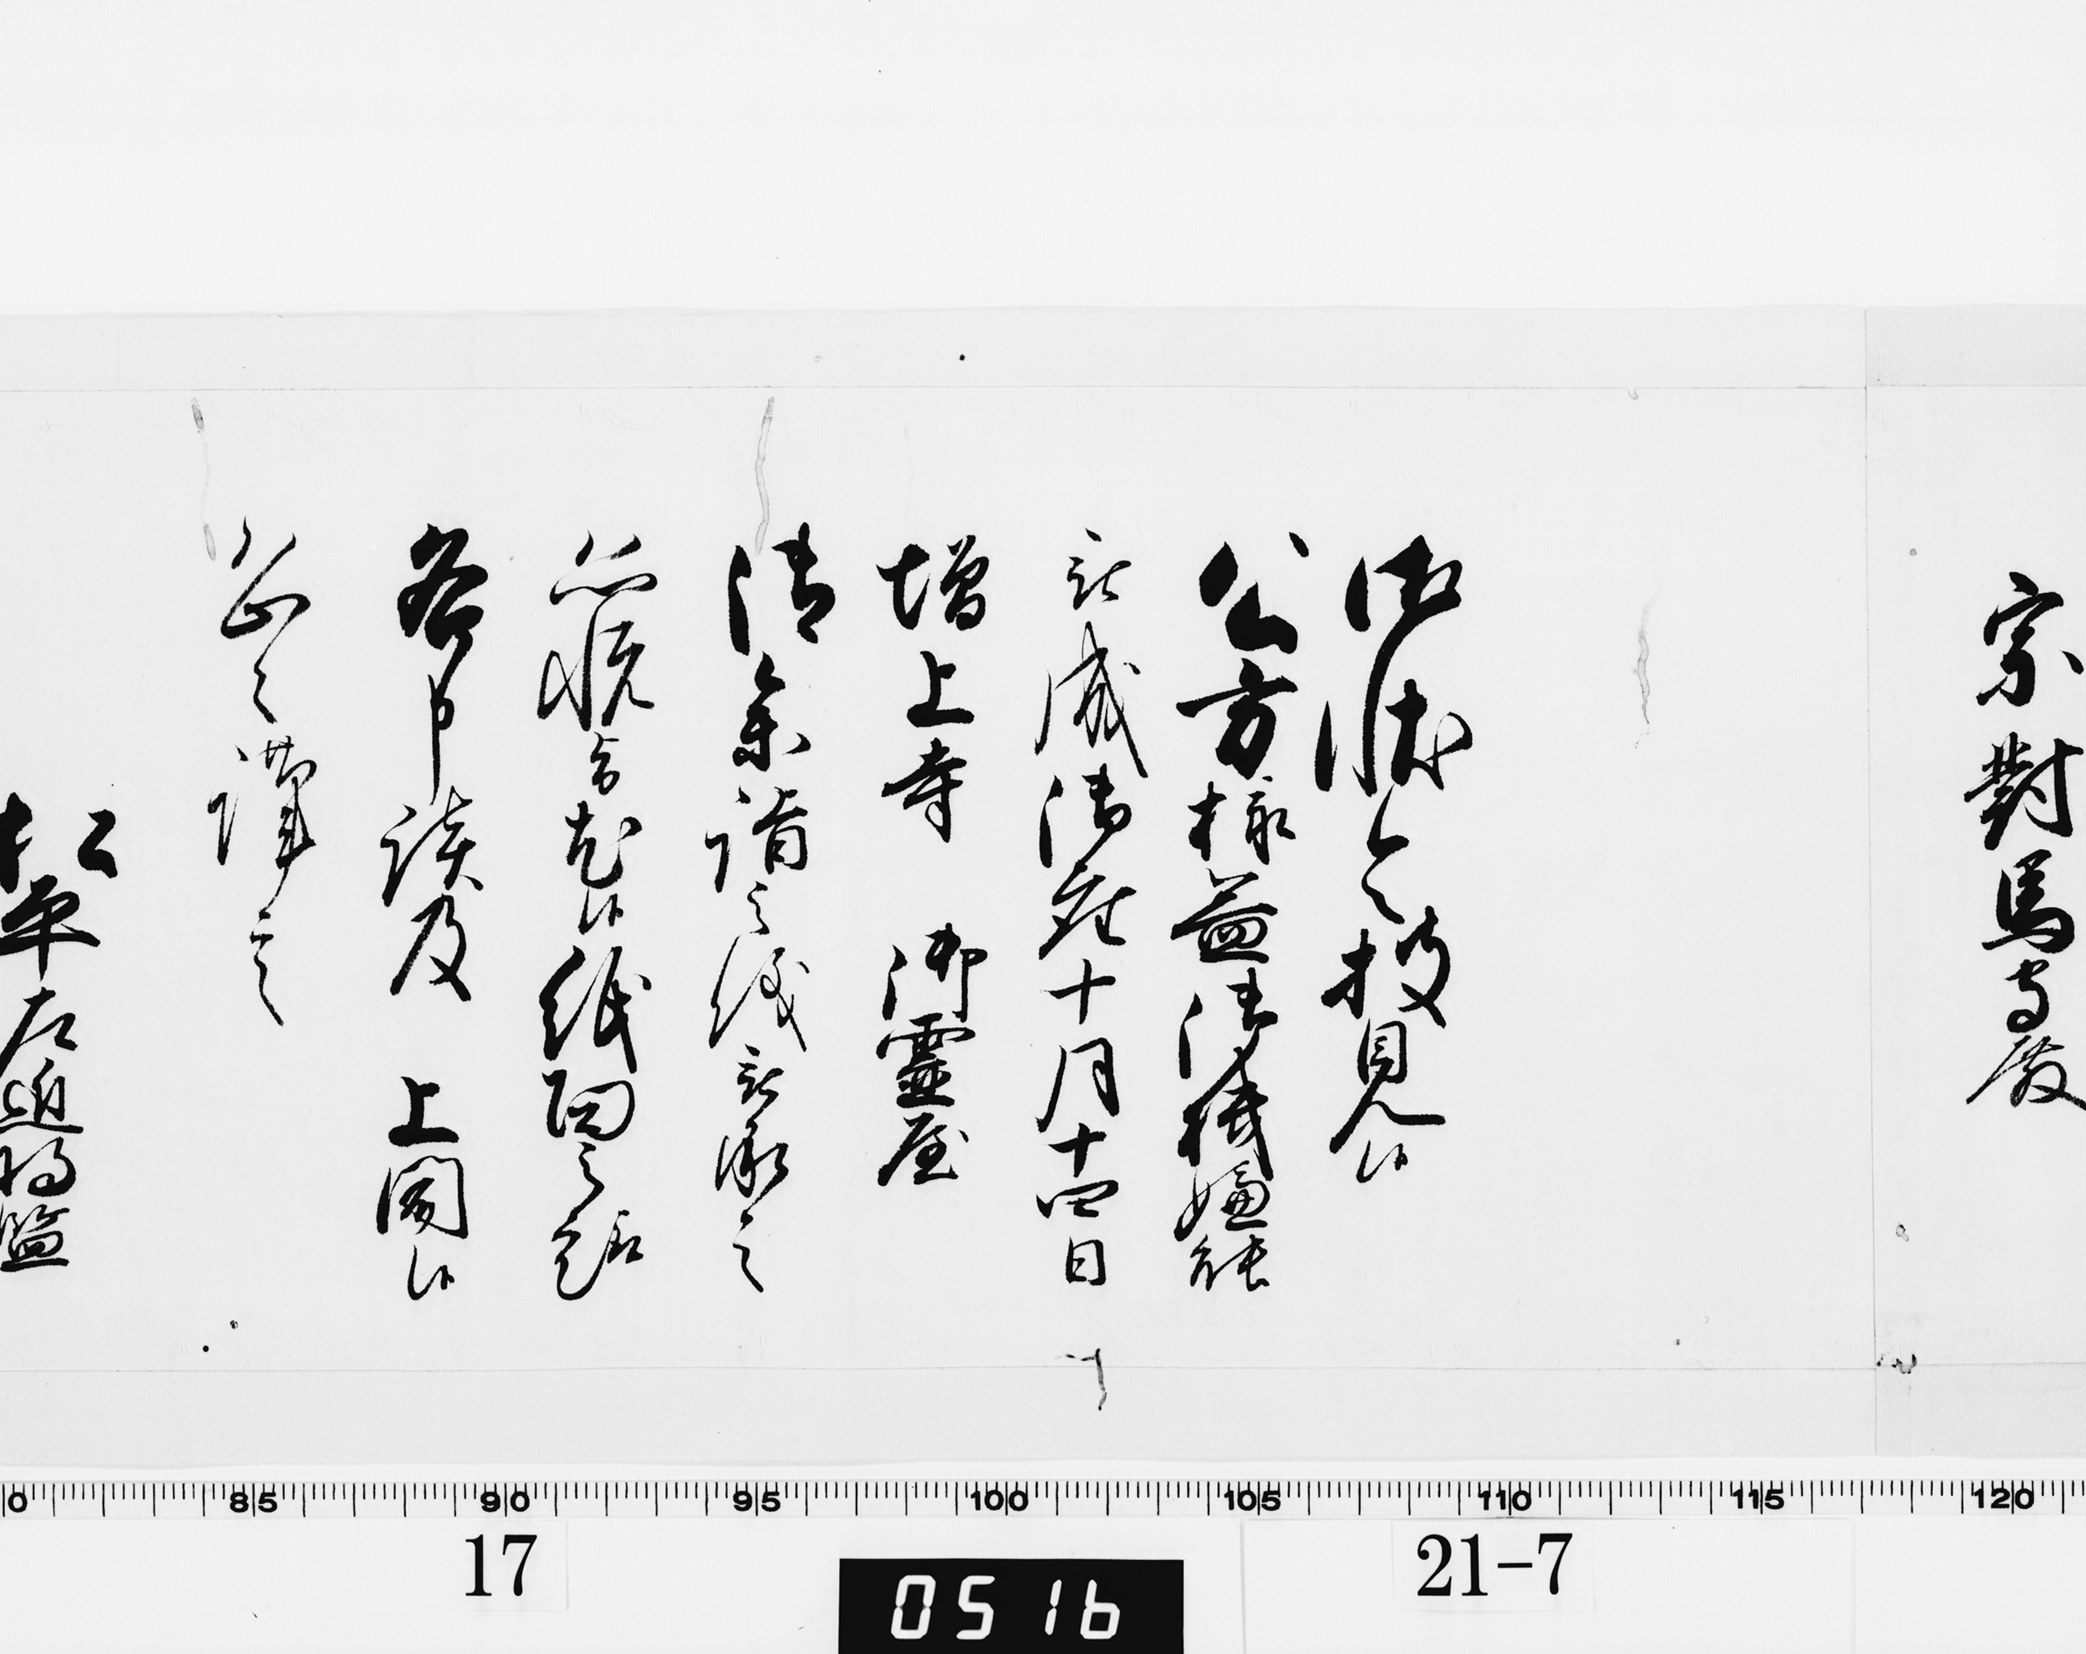 宗對馬守殿
御状令披見候
公方様益御機嫌能
被成御座十月十四日
増上寺 御霊屋
御参詣之儀被承之
恐悦旨尤候紙面之趣
各申談及 上聞候
恐々謹言
松平左近将監
0 85 90 95 100 105 110 115 120
17
0516
21-7